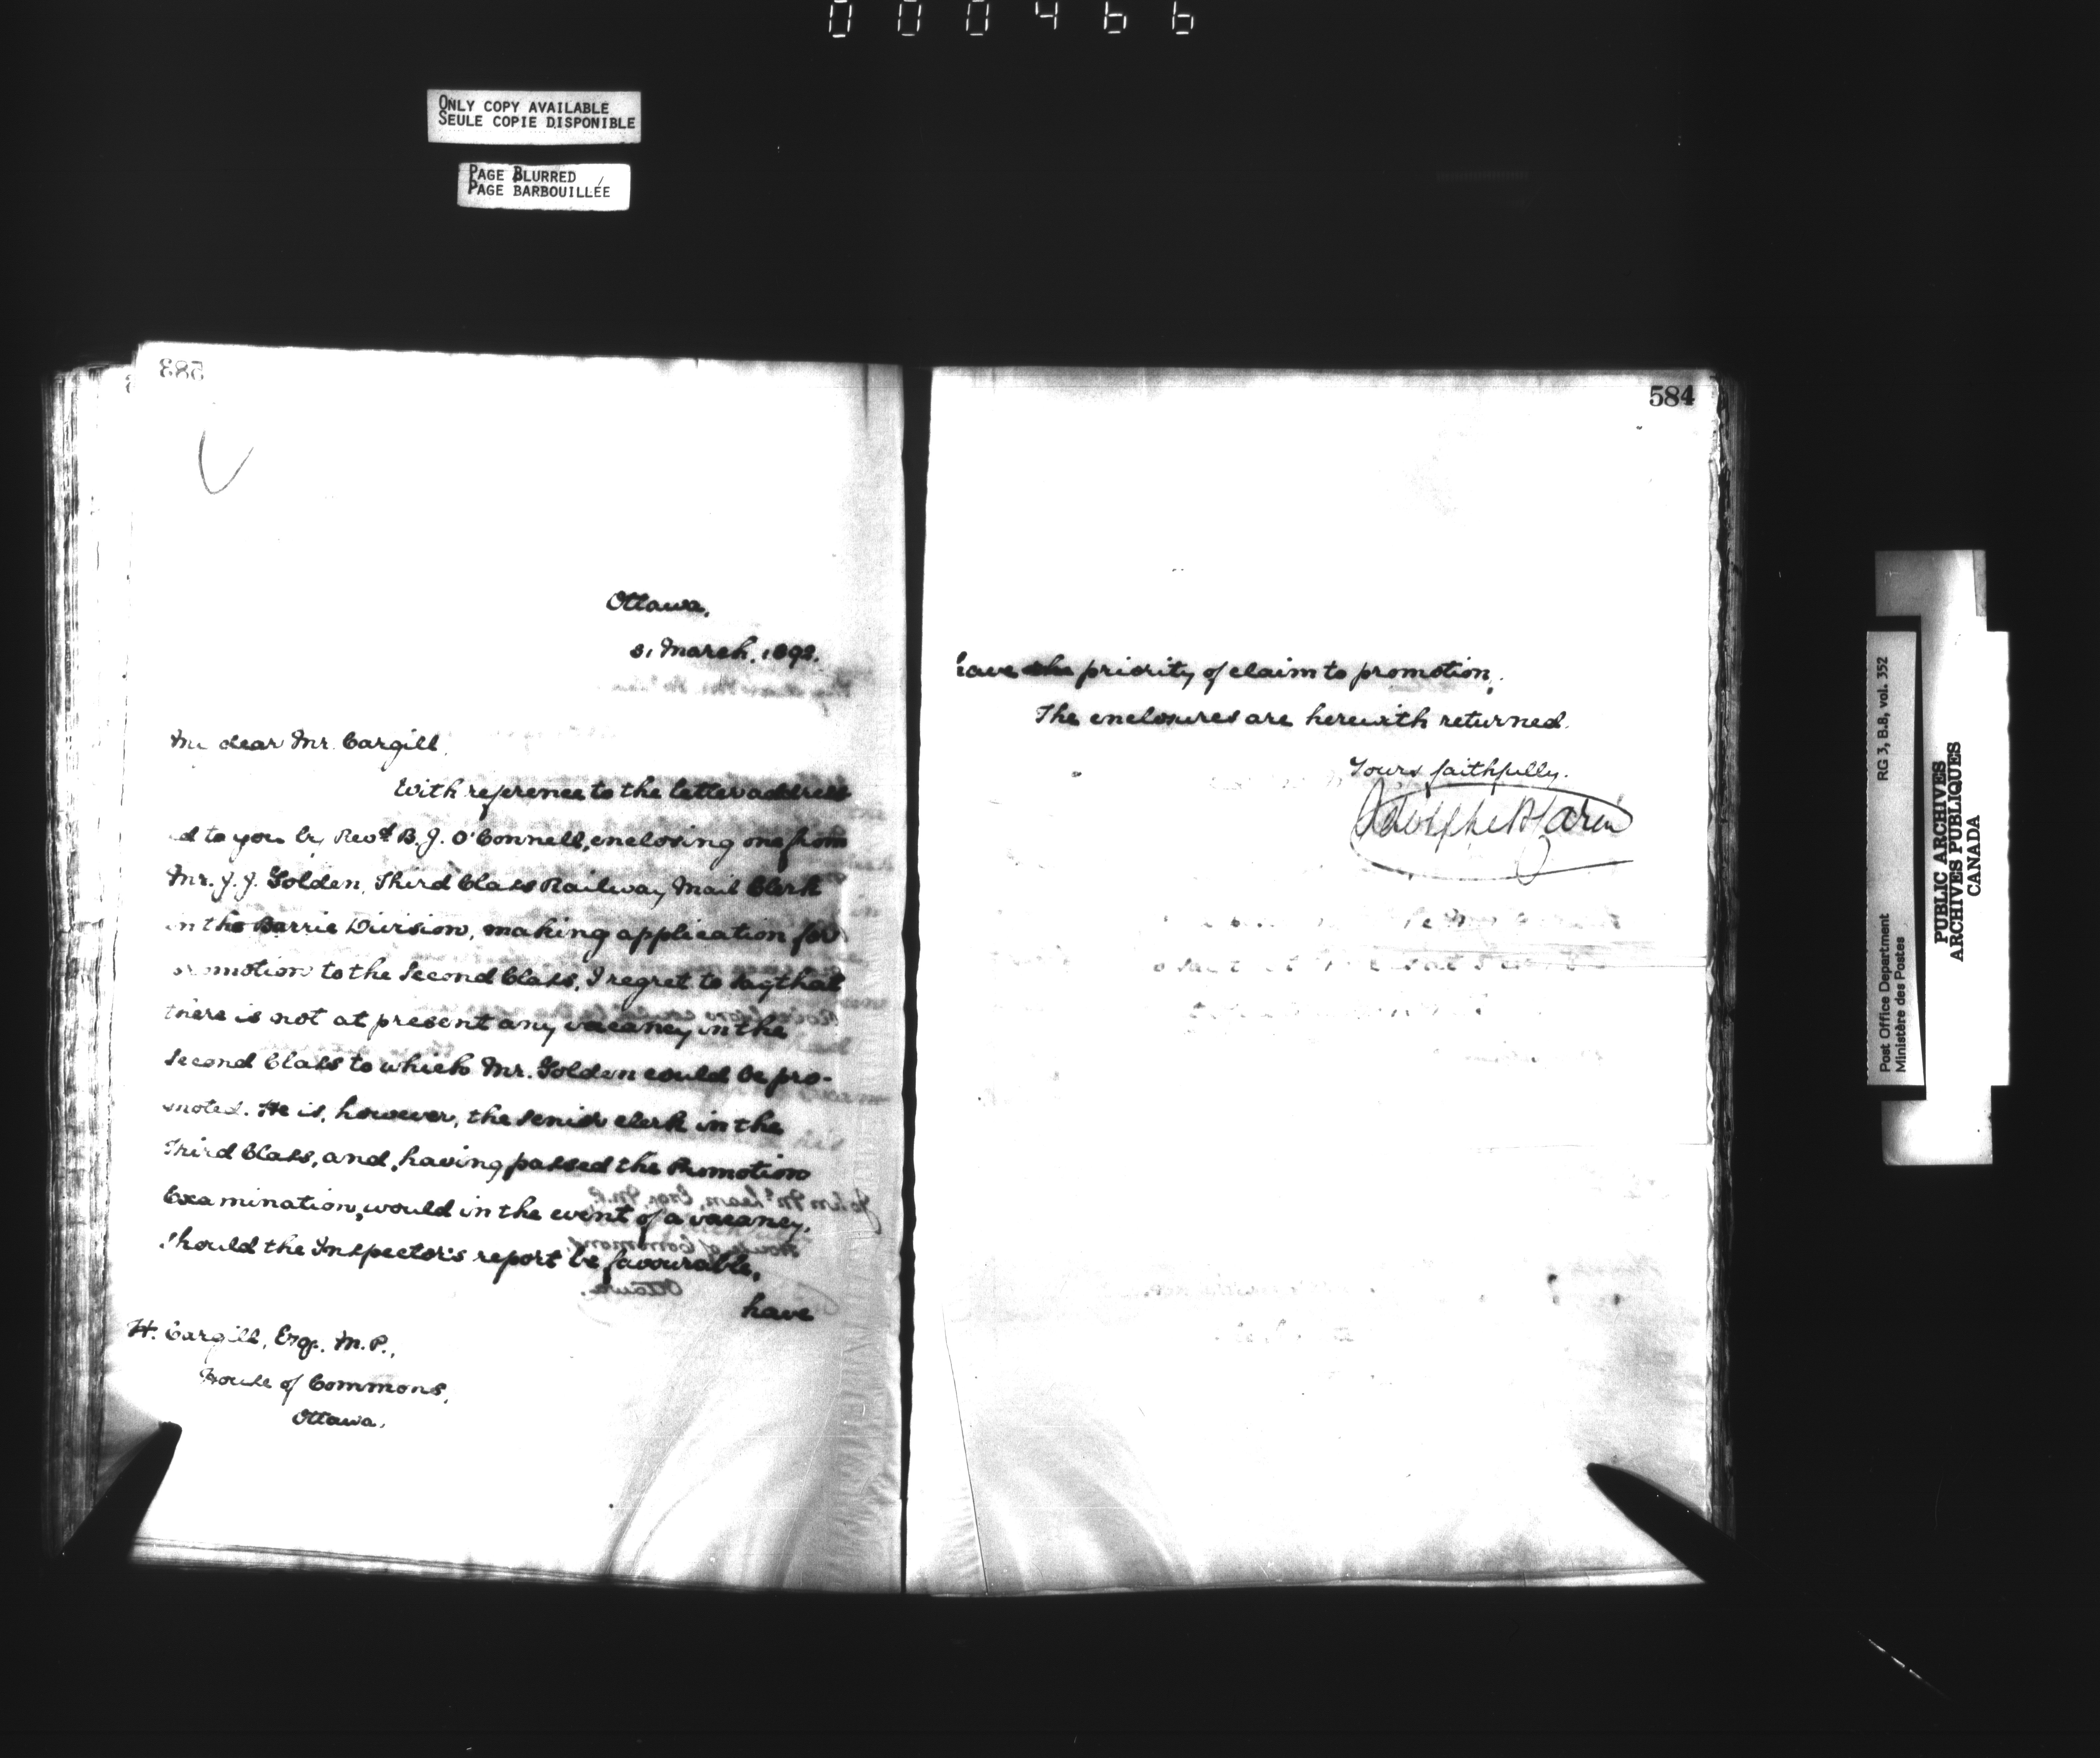 000466
ONLY COPY AVAILABLE
SEULE COPIE DISPONIBLE
PAGE BLURRED
PAGE BARBOUILLÉE
583
Ottawa,
31 March, 1892.
My dear Mr. Cargill,
With reference to the letter address
ed to you by Revd. B. J. O'Connell, enclosing one from
Mr. J. J. Golden, Third Class Railway Mail Clerk
in the Barrie Division, making application for
promotion to the Second Class, I regret to say that
there is not at present any vacancy in the
Second Class to which Mr. Golden could be pro-
moted. He is, however, the senior clerk in the
Third Class, and, having passed the Promotion
Examination, would in the event of a vacancy,
should the Inspector's report be favourable,
have
H. Cargill, Esq., M.P.,
House of Commons,
Ottawa.
John McLean, Esq. M.P.
House of Commons,
Ottawa.
584
have the priority of claim to promotion.
The enclosures are herewith returned.
Yours faithfully.
Adolphe P. Caron
Post Office Department RG 3, B.8, vol. 352
Ministère des Postes
PUBLIC ARCHIVES
ARCHIVES PUBLIQUES
CANADA